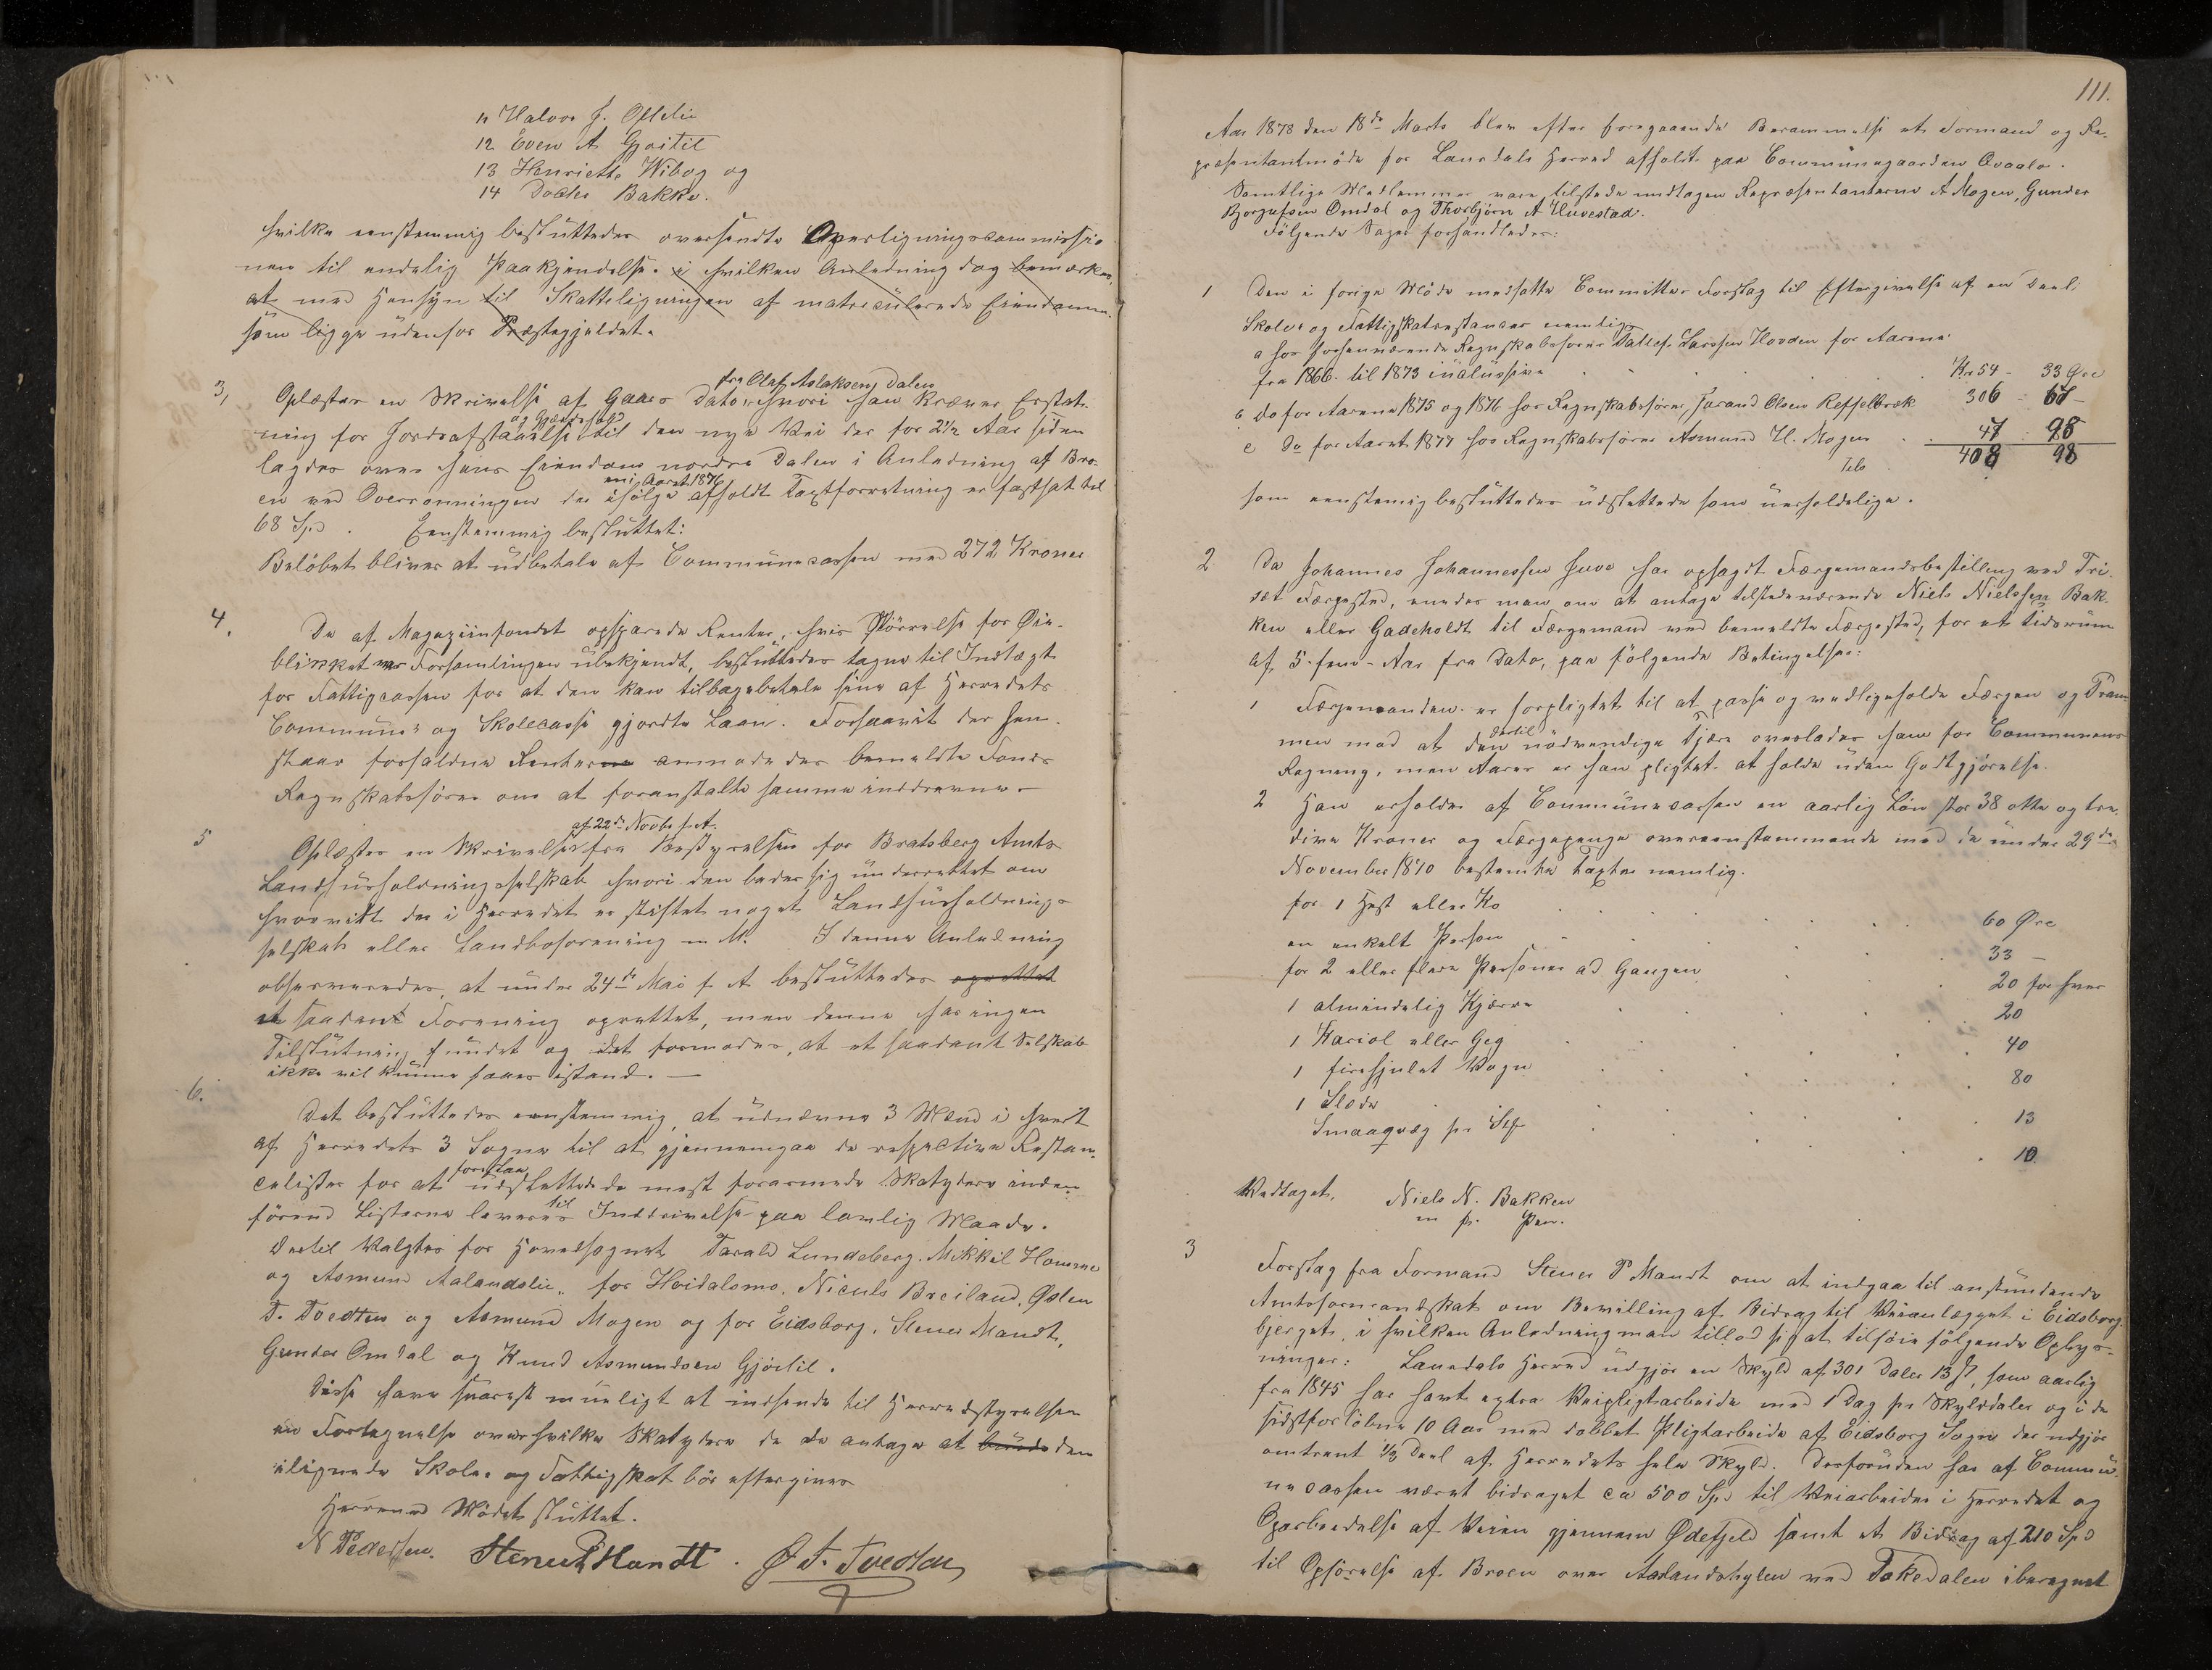 11 Halvor J.
12 Even A Gjøitil
13 Henriette Wibog og
14 Bakke.
hvilke eenstemmig besluttedes oversendte Overligningscommissio
nen til endelig Paakjendelse. i hvilken Anledning dog bemærkes,
at med Hensyn til Skatteligningen af matrculerede Eiendomme
som ligge udenfor Præstegjeldet.
3, Oplæstes en Skrivelse af Gaars Dato fra Olaf Aslaksen Dalen, hvori han kræver Erstat-
ning for Jordafstaaelse og Gjærdehold til den nye Vei der for 2½ Aar siden
lagdes over hans Eiendom nordre Dalen i Anledning af Bro-
en ved Overrønningen der ifølge en i Aaret 1876 afholdt Taxtforretning er fastsat til
68 Spd. Eenstemmig besluttet:
Beløbet bliver at udbetale af Communecassen med 272 Kroner
4. De af Magazinfondet opsparede Renter, hvis Størrelse for Øie-
blikket var Forsamlingen ubekjendt, besluttedes tagne til Indtægt
for Fattigcassen for at den kan tilbagebetale sine af Herredets
Commune- og Skolecasse gjordte Laan. Forsaavit der hen-
staar forfaldne Renter anmodedes bemeldte Fonds
Regnskabsfører om at foranstalte samme inddrevne.
5 Oplæstes en Skrivelse af 22de Novbr f. A. fra Bestyrelsen for Bratsberg Amts
Landhusholdningsselskab hvori den beder sig underrettet om
hvorvidt der i Herredet er stiftet noget Landhusholdnings
selskab eller Landboforening m. M. I denne Anledning
observeredes, at under 24de Mai f A besluttedes oprettet
et saadant Forening oprettet, men denne har ingen
Tilslutning fundet og det formodes, at et saadant Selskab
ikke vil kunne faaes istand. —
6. Det besluttedes eenstemmig, at udnævne 3 Mænd i hvert
af Herredets 3 Sogne til at gjennemgaa de respective Restan-
celister for at foreslaa udslettede de mest forarmede Skatydere inden
førend Listerne leveres til Inddrivelse paa lovlig Maade.
Dertil valgtes for Hovedsognet Tarald Lundeberg. Mikkel Homme
og Asmund Aalandslie. for Høidalsmo. Niculs Breiland, Østen
T. Tvedten og Asmund Mogen og for Eidsborg. Stener Mandt,
Gunder Omdal og Knud Asmundsen Gjøitil.
Disse have snarest muligt at indsende til Herredstyrelsen
en Fortegnelse over hvilke Skatydere de antage at burde den
ilignede Skole- og Fattigskat bør eftergives
Herremed Mødet sluttet.
N Pedersen. Stener P Mandt. Ø T. Tvedten
111.
Aar 1878 den 18de Marts blev efter foregaaende Berammelse et Formand og Re-
præsentantmøde for Laurdals Herred afholdt paa Communegaarden Qvaale.
Samtlige Medlemmer vare tilstede undtagen Repræsentanterne A Mogen, Gunder
Bjorgufsen Omdal og Thorbjørn A Huvestad.
Følgende Sager forhandledes:
1 Den i forrige Møde nedsatte Committees Forslag til Eftergivelse af en Deel
Skole- og Fattigskatrestancer nemlig
a hos forhenværende Regnskabsfører Larssen Hovden for Aarene
fra 1866. til 1873 inclussive Kr 54 - 33 Øre
b do for Aarene 1875 og 1876 hos Regnskabsfører, Tarand Olsen 306 - 67 -
c Do for Aaret 1877 hos Regnskabsfører Asmund H. Mogen 47 - 98
Tils 408 98
som eenstemig besluttedes udslettede som uerholdelige.
2. Da Johannes Johannessen Juve har opsagt Færgemandsbestilling ved Tri-
sæt Færgested, enedes man om at antage tilstedeværende Niels Nielssen Bak-
ken eller Gadeholdt til Færgemand ved bemeldte Færgested, for et tidsrum
af 5 - fem - Aar fra Dato, paa følgende Betingelser:
1 Færgemanden er forpligtet til at passe og vedligeholde Færgen og Pram-
men mod at den dertil nødvendige Tjære overlades ham for Communens
Regning, men Aarer er han pligtet at holde uden Godtgjørelse.
2 Han erholder af Communecassen en aarlig Løn stor 38 otte og tre-
dive Kroner og Færgepenge overeenstemmende med de under 29de
November 1870 bestemte Taxter nemlig.
for 1 Hest eller Ko 60 Øre
en enkelt Person 33 —
for 2 eller flere Personer ad Gangen 20 for hver
1 almindelig Kjærre 20
1 Kariol eller Geg 40
1 firehjulet Vogn 80
1 Slæde 13
Smaaqvæg pr Stk 10.
Vedtaget, Niels N. Bakken
m p. Pen.
3 Forslag fra Formand Stener P Mandt om at indgaa til anstundende
Amtsformandskab om Bevilling af Bidrag til Veianlægget i Eidsborg-
bjerget, i hvilken Anledning man tillod sig at tilføie følgende Oplys-
ninger: Laurdals Herred udgjør en Skyld af 301 Daler 13 ß, som aarlig
fra 1845 har havt extra Veipligtarbeide med 1 Dag pr Skylddaler og i de
sidstforløbne 10 Aar med dobbelt Pligtarbeide af Eidsborg Sogn der udgjør
omtrent 1/3 Deel af Herredets hele Skyld. Desforuden har af Commu-
necassen været bidraget ca 500 Spd til Veiarbeider i Herredet og
Oparbeidelse af Veien gjennem Ødefjeld samt et Bidrag af 210 Spd
til Opførelse af Broen over Aarlandshylen ved Tokedalen iberegnet